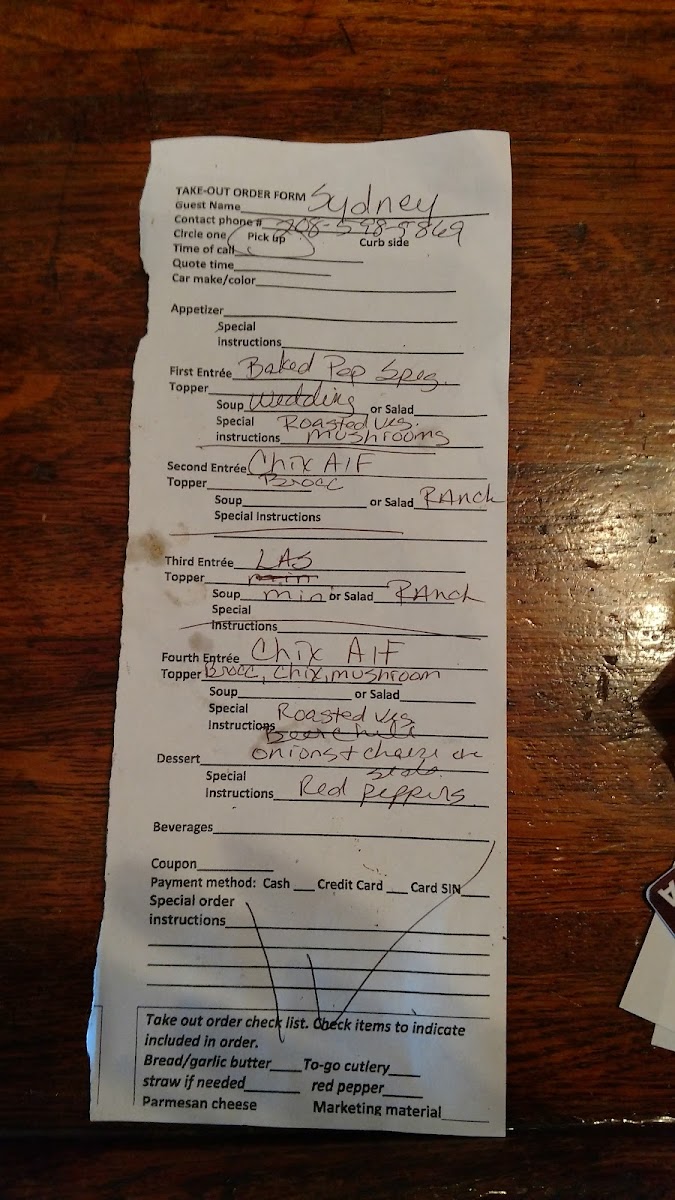 TAKE-OUT ORDER FORM
Guest Name Sydney
Contact phone # 208-598-8869
Circle one Pick up Curb side
Time of call
Quote time
Car make/color
Appetizer
Special
instructions
First Entrée Baked Pep Spag.
Topper
Soup Wedding or Salad
Special Roasted Veg.
instructions mushrooms
Second Entrée Chix AlF
Topper Brocc
Soup or Salad RAnch
Special Instructions
Third Entrée LAS
Topper min
Soup min or Salad RAnch
Special
Instructions
Fourth Entrée Chix AlF
Topper Brocc, Chix, mushroom
Soup or Salad
Special Roasted Veg
Instructions
Dessert onions + cheeze
Special
Instructions Red peppers
Beverages
Coupon
Payment method: Cash Credit Card Card SIN
Special order
instructions
Take out order check list. Check items to indicate
included in order.
Bread/garlic butter To-go cutlery
straw if needed red pepper
Parmesan cheese Marketing material